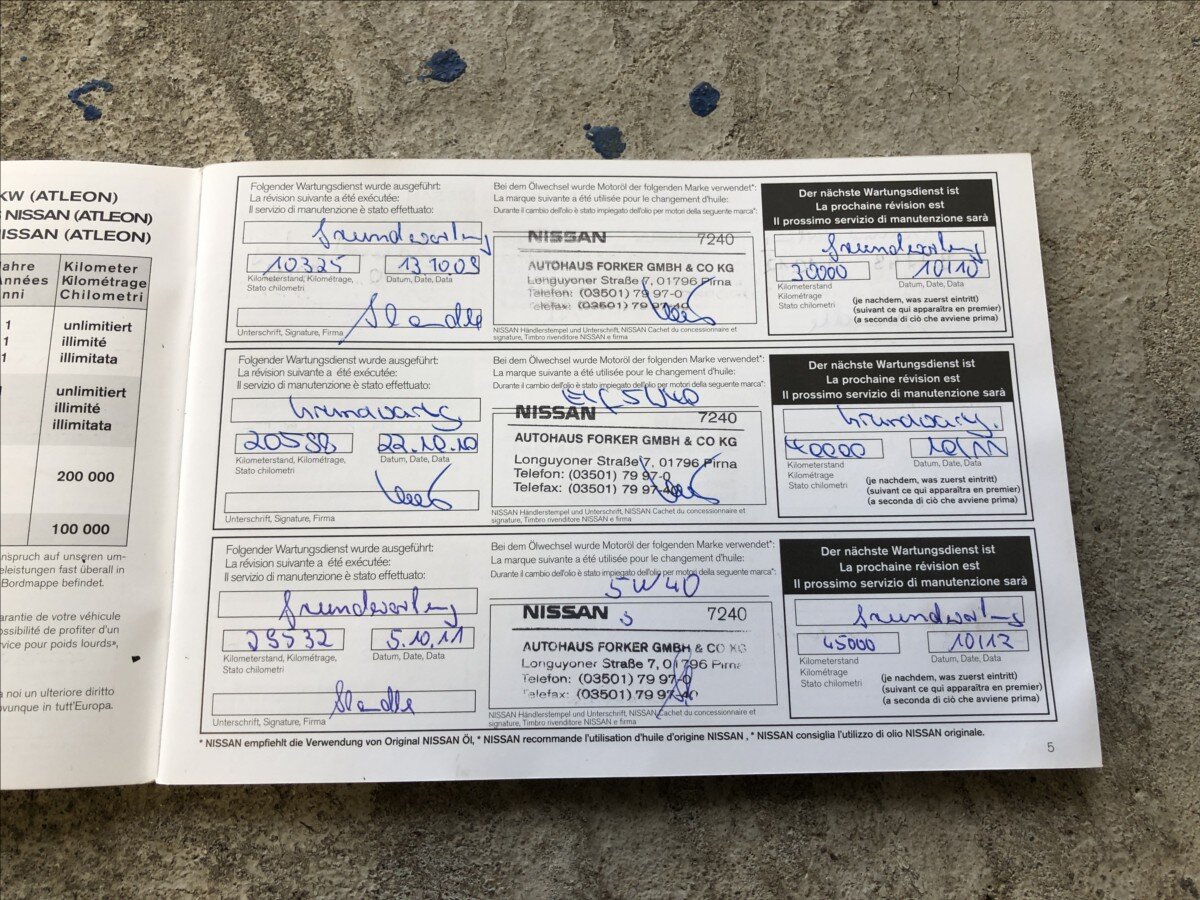 KW (ATLEON)
NISSAN (ATLEON)
ISSAN (ATLEON)
Jahre
Années
nni
Kilometer
Kilométrage
Chilometri
1
1
1
unlimitiert
illimité
illimitata
unlimitiert
illimité
illimitata
200 000
100 000
nspruch auf unseren um-
eleistungen fast überall in
Bordmappe befindet.
arantie de votre véhicule
ssibilité de profiter d'un
vice pour poids lourds»,
a noi un ulteriore diritto
ovunque in tutt'Europa.
Folgender Wartungsdienst wurde ausgeführt:
La révision suivante a été exécutée:
Il servizio di manutenzione è stato effettuato:
Grundwartung
10325 13.10.09
Kilometerstand, Kilométrage,
Stato chilometri
Datum, Date, Data
Unterschrift, Signature, Firma
Bei dem Ölwechsel wurde Motoröl der folgenden Marke verwendet*:
La marque suivante a été utilisée pour le changement d'huile:
Durante il cambio dell'olio è stato impiegato dell'olio per motori della seguente marca*:
NISSAN 7240
AUTOHAUS FORKER GMBH & CO KG
Longuyoner Straße 7, 01796 Pirna
Telefon: (03501) 79 97-0
Telefax: (03501) 79 97-40
NISSAN Händlerstempel und Unterschrift, NISSAN Cachet du concessionnaire et
signature, Timbro rivenditore NISSAN e firma
Der nächste Wartungsdienst ist
La prochaine révision est
Il prossimo servizio di manutenzione sarà
Grundwartung
30000 10/10
Kilometerstand
Kilométrage
Stato chilometri
Datum, Date, Data
(je nachdem, was zuerst eintritt)
(suivant ce qui apparaîtra en premier)
(a seconda di ciò che avviene prima)
Folgender Wartungsdienst wurde ausgeführt:
La révision suivante a été exécutée:
Il servizio di manutenzione è stato effettuato:
Grundwartg
20588 22.10.10
Kilometerstand, Kilométrage,
Stato chilometri
Datum, Date, Data
Unterschrift, Signature, Firma
Bei dem Ölwechsel wurde Motoröl der folgenden Marke verwendet*:
La marque suivante a été utilisée pour le changement d'huile:
Durante il cambio dell'olio è stato impiegato dell'olio per motori della seguente marca*:
Elf 5W40
NISSAN 7240
AUTOHAUS FORKER GMBH & CO KG
Longuyoner Straße 7, 01796 Pirna
Telefon: (03501) 79 97-0
Telefax: (03501) 79 97-40
NISSAN Händlerstempel und Unterschrift, NISSAN Cachet du concessionnaire et
signature, Timbro rivenditore NISSAN e firma
Der nächste Wartungsdienst ist
La prochaine révision est
Il prossimo servizio di manutenzione sarà
Grundwartg.
40000 10/11
Kilometerstand
Kilométrage
Stato chilometri
Datum, Date, Data
(je nachdem, was zuerst eintritt)
(suivant ce qui apparaîtra en premier)
(a seconda di ciò che avviene prima)
Folgender Wartungsdienst wurde ausgeführt:
La révision suivante a été exécutée:
Il servizio di manutenzione è stato effettuato:
Grundwartung
29532 5.10.11
Kilometerstand, Kilométrage,
Stato chilometri
Datum, Date, Data
Unterschrift, Signature, Firma
Bei dem Ölwechsel wurde Motoröl der folgenden Marke verwendet*:
La marque suivante a été utilisée pour le changement d'huile:
Durante il cambio dell'olio è stato impiegato dell'olio per motori della seguente marca*:
5W40
NISSAN 7240
AUTOHAUS FORKER GMBH & CO KG
Longuyoner Straße 7, 01796 Pirna
Telefon: (03501) 79 97-0
Telefax: (03501) 79 97-40
NISSAN Händlerstempel und Unterschrift, NISSAN Cachet du concessionnaire et
signature, Timbro rivenditore NISSAN e firma
Der nächste Wartungsdienst ist
La prochaine révision est
Il prossimo servizio di manutenzione sarà
Grundwartung
45000 10/12
Kilometerstand
Kilométrage
Stato chilometri
Datum, Date, Data
(je nachdem, was zuerst eintritt)
(suivant ce qui apparaîtra en premier)
(a seconda di ciò che avviene prima)
* NISSAN empfiehlt die Verwendung von Original NISSAN Öl, * NISSAN recommande l'utilisation d'huile d'origine NISSAN , * NISSAN consiglia l'utilizzo di olio NISSAN originale.
5